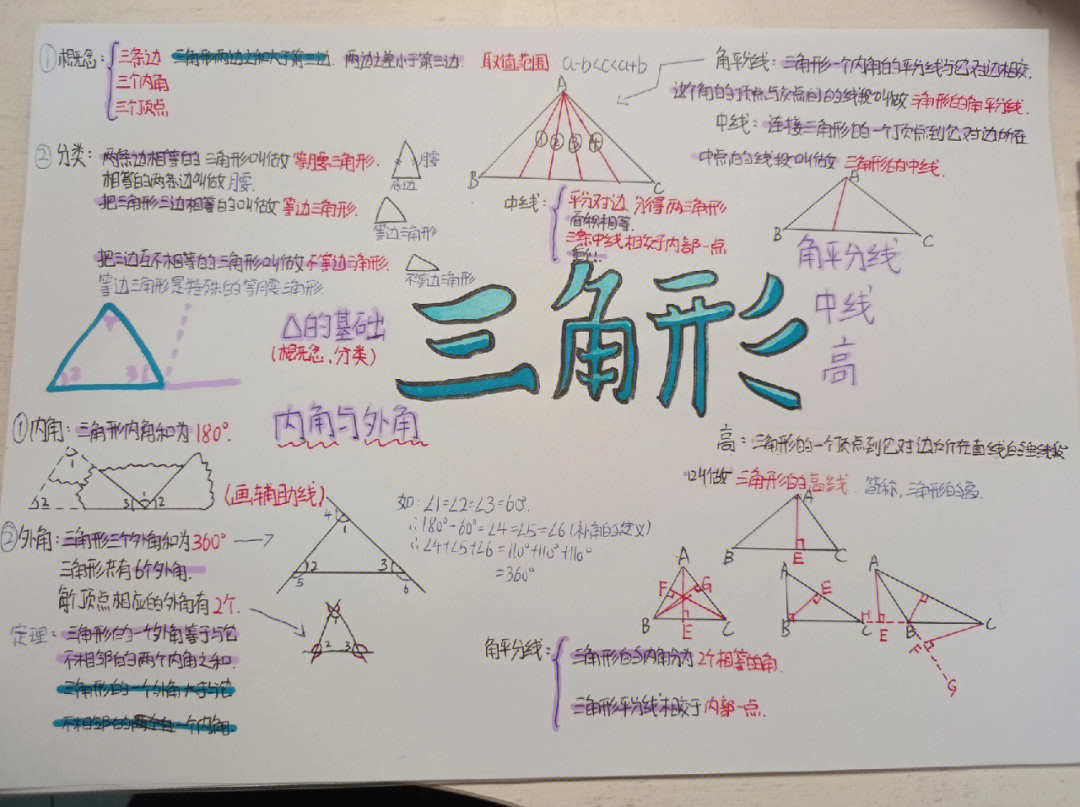 ①概念：
三条边 三角形两边之和大于第三边 两边之差小于第三边 取值范围 a-b<c<a+b
三个内角
三个顶点
角平分线：三角形一个内角的平分线与它对边相交.
这个角的顶点与交点间的线段叫做 三角形的角平分线.
中线：连接三角形的一个顶点到它对边所在
中点的线段叫做 三角形的中线.
②分类：两条边相等的三角形叫做 等腰三角形.
相等的两条边叫做腰.
腰
底边
把三角形三边相等的叫做 等边三角形.
等边三角形
把三边互不相等的三角形叫做不等边三角形.
不等边三角形
等边三角形是特殊的等腰三角形
A
① ② ③ ④
B C
中线：
平分对边 分得两三角形
面积相等.
三条中线相交于内部一点
A
B C
角平分线
中线
高
三角形
△的基础
(概念,分类)
2 3
内角与外角
①内角：三角形内角和为180°.
1
2 3 1 2
(画辅助线)
②外角：三角形三个外角和为360°
三角形共有6个外角.
每个顶点相应的外角有2个.
4 1
2 3
5 6
2 3
如：∠1=∠2=∠3=60°.
∴180°-60°=∠4=∠5=∠6(补角的定义)
∴∠4+∠5+∠6=110°+110°+110°
=360°
定理：三角形的一个外角等于与它
不相邻的两个内角之和.
三角形的一个外角大于与它
不相邻的一个内角.
高：三角形的一个顶点到它对边所在直线的垂线段
叫做 三角形的高线. 简称,三角形的高.
A
B E C
A
F G
B E C
A
E
B C
A
H E B C
F
G
角平分线：
三角形的内角分为2个相等的角.
三角形平分线相交于内部一点.